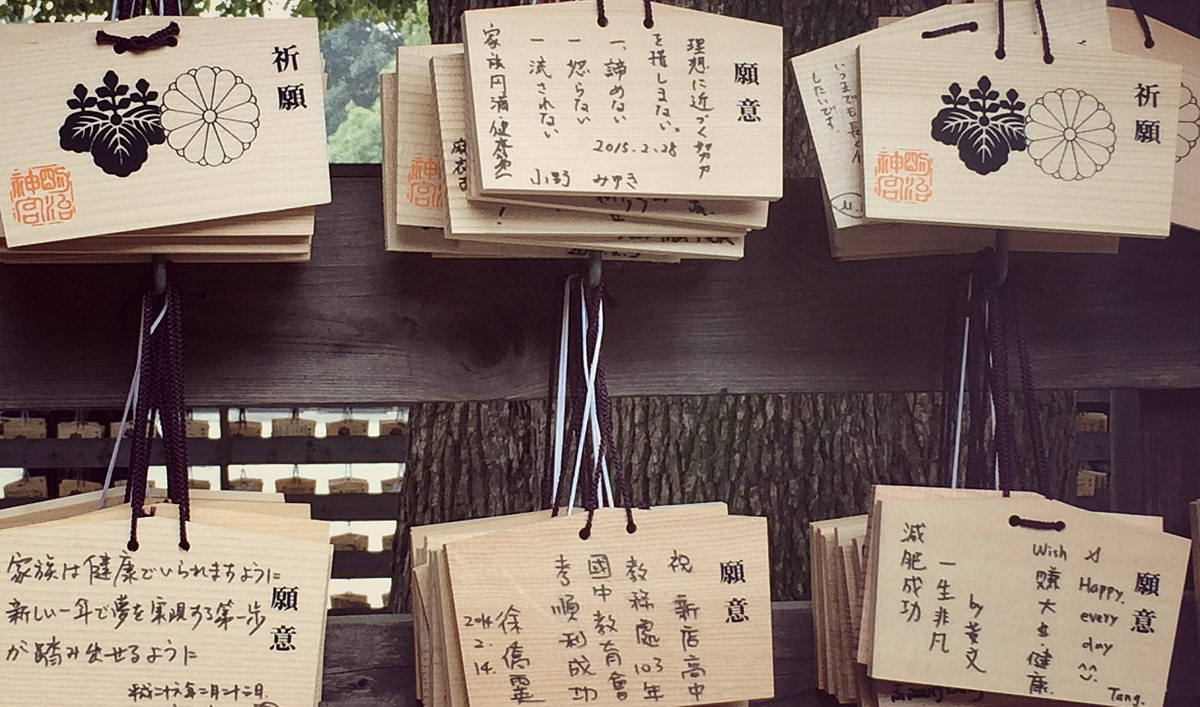 祈願
明治
神宮
願意
理想に近づく努力
を惜しまない。
一、諦めない
一 怒らない
一 流されない
家族円満 健康第一
2015.2.28
小野 みゆき
麻衣子
祈願
明治
神宮
いつまでも
したいです。
願意
家族は健康でいられますように
新しい一年で夢を実現する第一歩
が踏み出せるように
平成二十六年二月二十二日
願意
祝 新店高中
教務處103年
國中教育會
考順利成功
徐僑霙
2014.
2.
14.
願意
Happy
every
day
^^
Tang.
Wish 賺大金健康
by 黃文
一生非凡
減肥成功